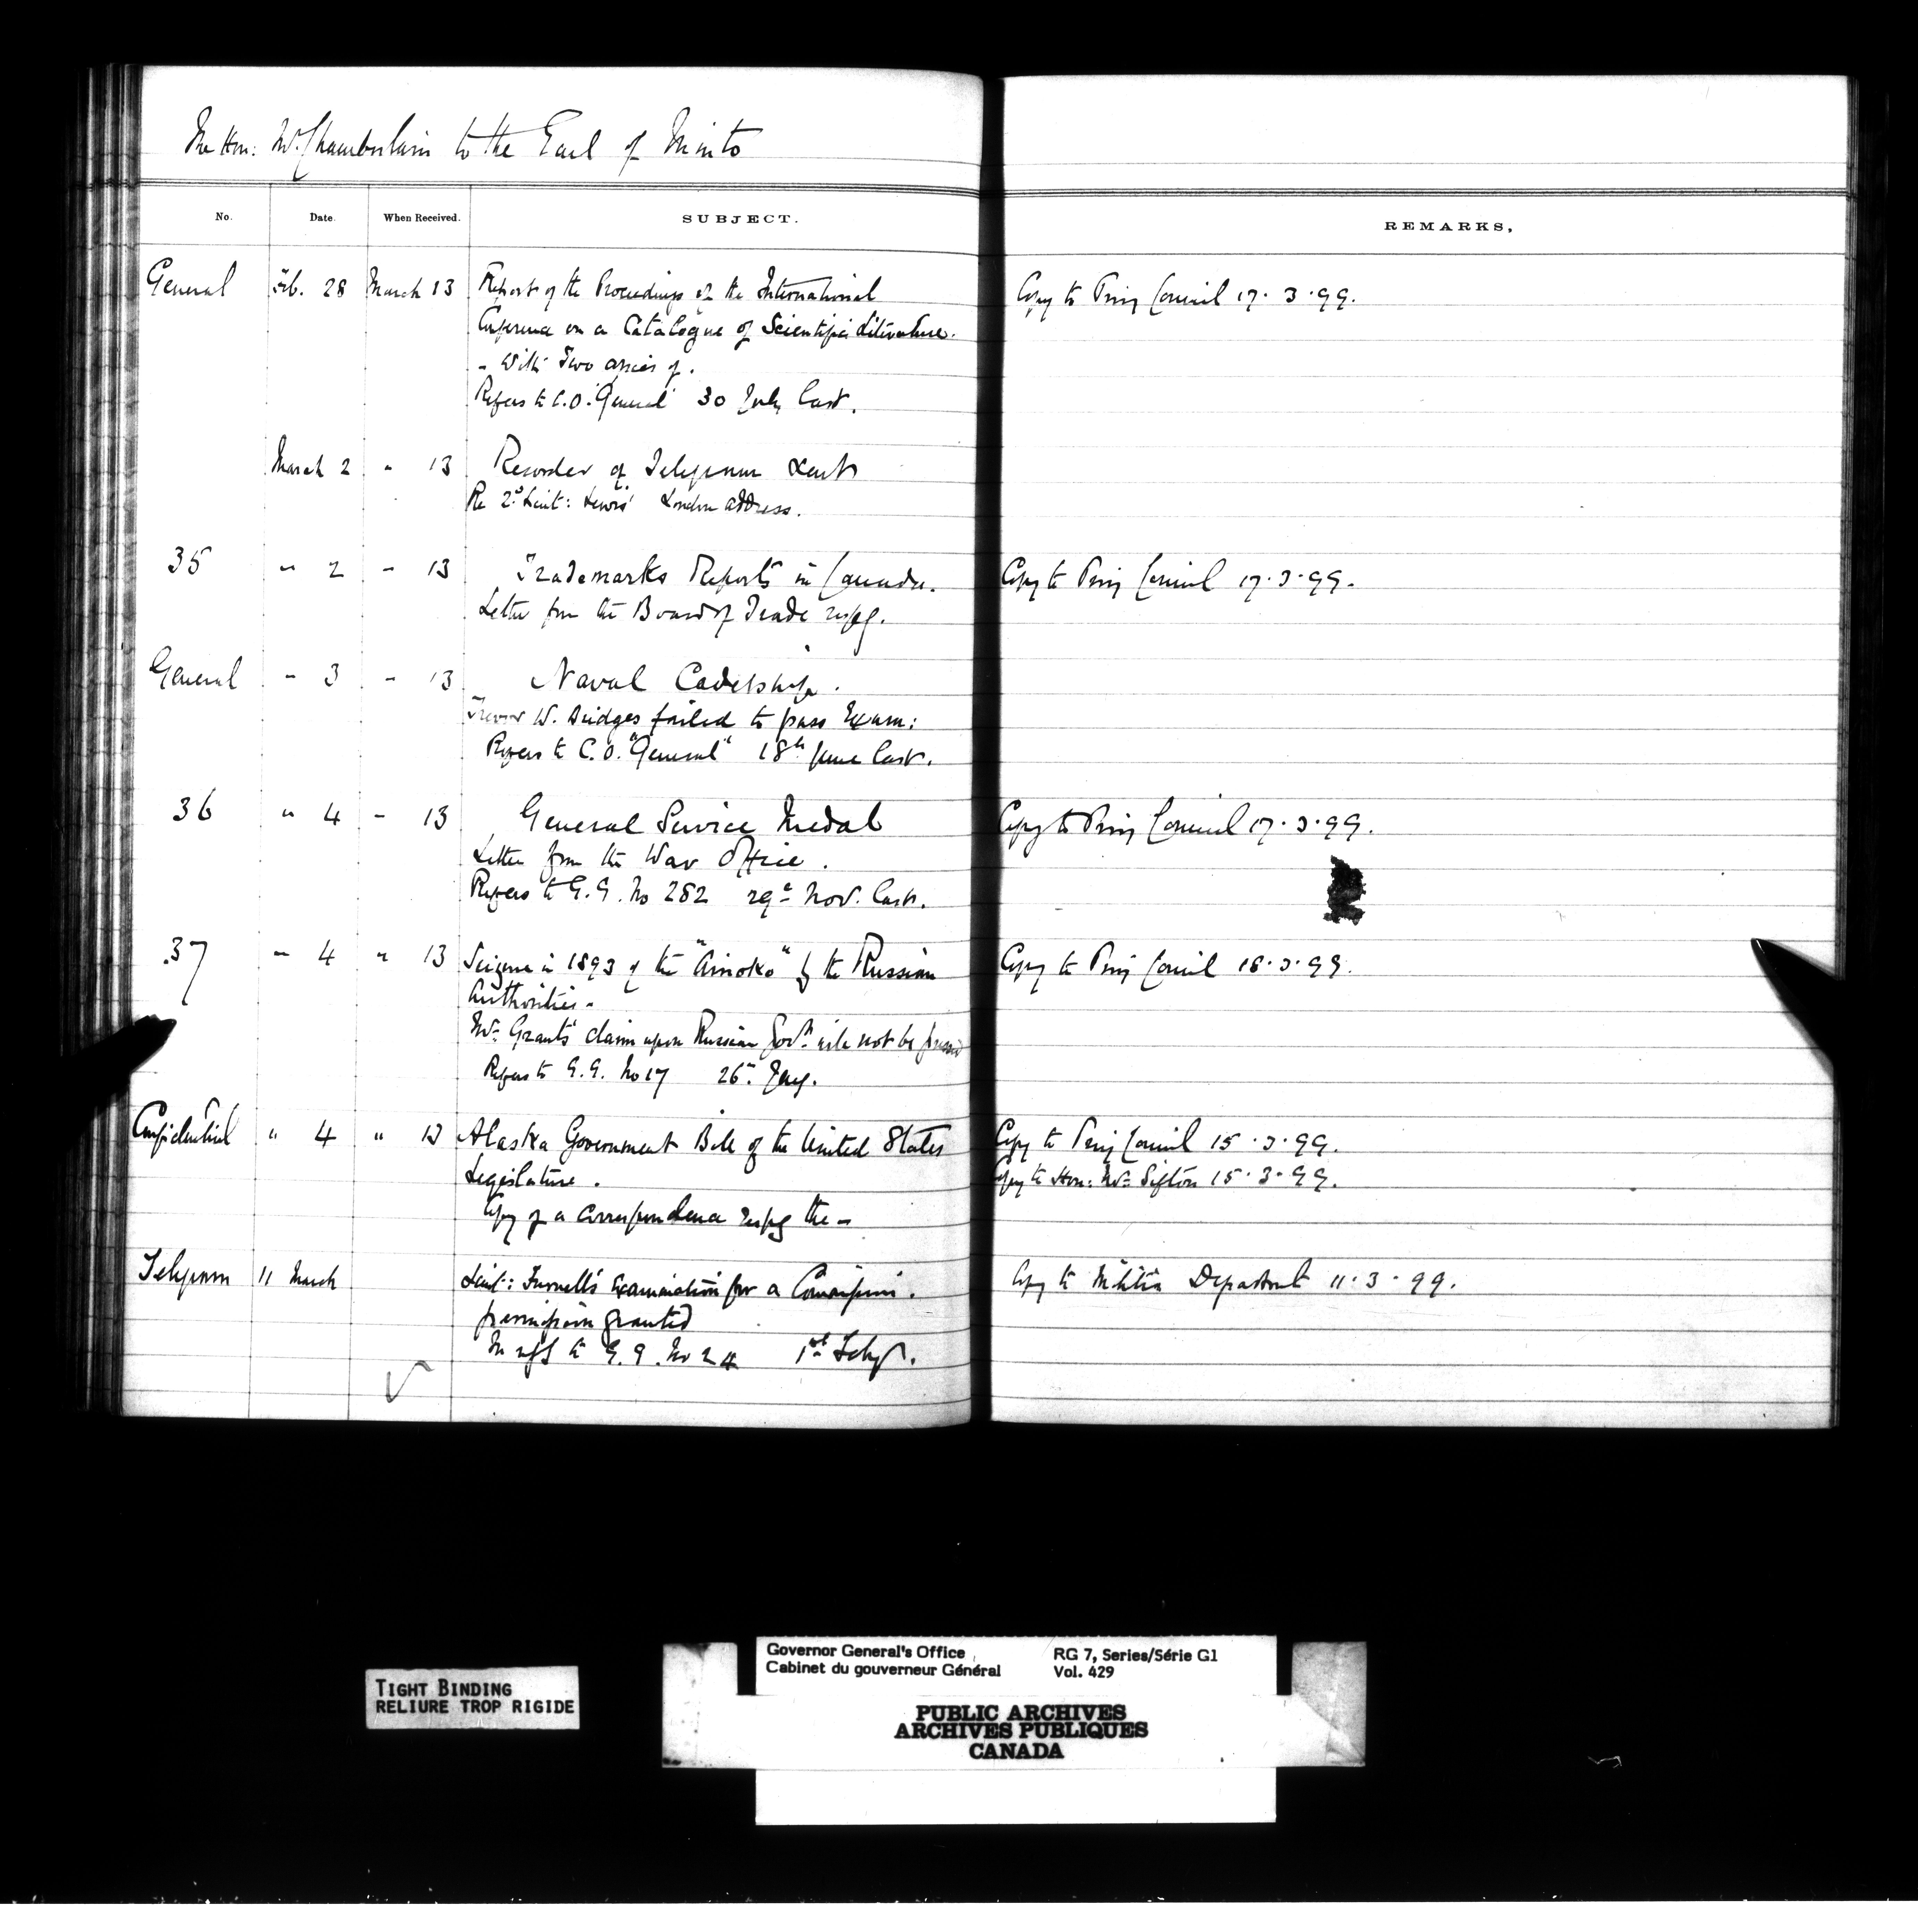 The Hon: Mr Chamberlain to the Earl of Minto
No. Date. When Received. SUBJECT. REMARKS.
General Feb. 28 March 13 Report of the Proceedings of the International Copy to Privy Council 17.3.99.
Conference on a Catalogue of Scientific Literature.
- With Two copies of.
Refers to C.O. "General" 30 July last.
March 2 " 13 Recorder of Telegram sent
Re 2d Lieut: Lewis' London address.
35 " 2 " 13 Trademarks Reports in Canada. Copy to Privy Council 17.3.99.
Letter from the Board of Trade respg.
General " 3 " 13 Naval Cadetship.
Trevor W. Bridges failed to pass Exam:
Refers to C.O. "General" 18th June last.
36 " 4 " 13 General Service Medal Copy to Privy Council 17.3.99.
Letter from the War Office.
Refers to G.G. No 282 29th Nov. last.
37 " 4 " 13 Seizure in 1893 of the "Ainoko" by the Russian Copy to Privy Council 18.3.99.
Authorities -
Mr Grant's claim upon Russian Govt will not be pressed
Refers to G.G. No 17 26th Jany.
Confidential " 4 " 13 Alaska Government Bill of the United States Copy to Privy Council 15.3.99.
Legislature. Copy to Hon: Mr Sifton 15.3.99.
Copy of a correspondence respg the -
Telegram 11 March Lieut: Furnell's Examination for a Commission. Copy to Militia Department 11.3.99.
permission granted
In refce to G.G. No 24 1st Feby.
TIGHT BINDING
RELIURE TROP RIGIDE
Governor General's Office RG 7, Series/Série G1
Cabinet du gouverneur Général Vol. 429
PUBLIC ARCHIVES
ARCHIVES PUBLIQUES
CANADA